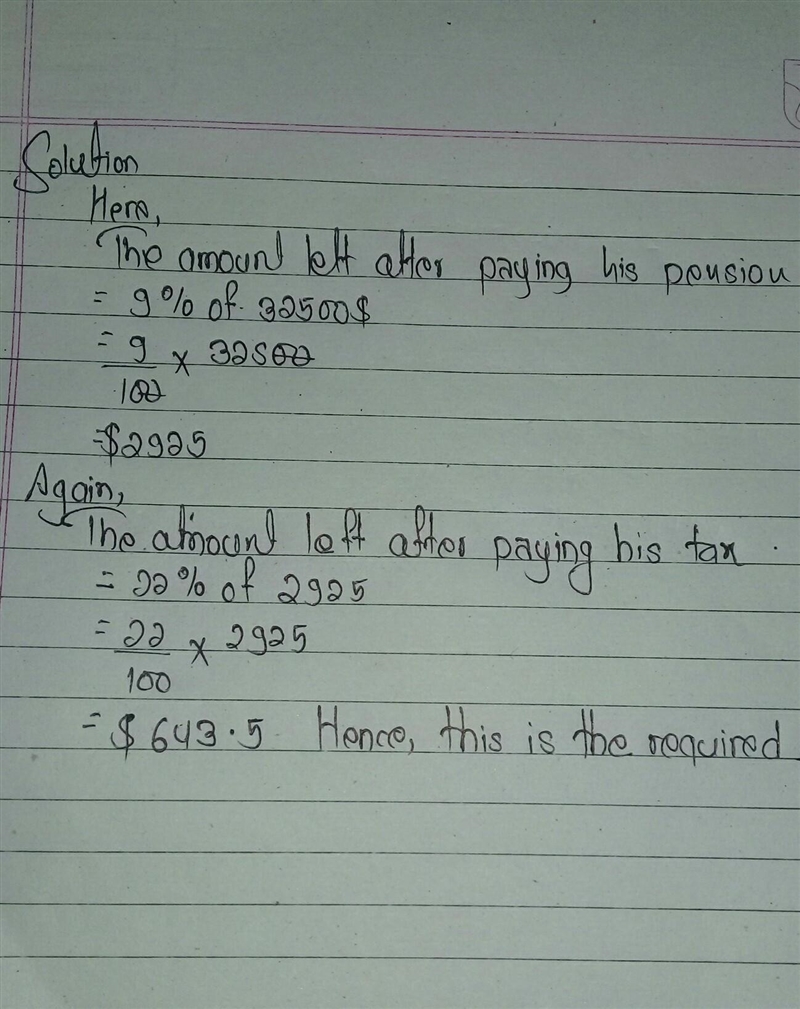 Solution
Here,
The amount left after paying his pension
= 9% of 32500$
= 9/100 × 32500
=$2925
Again,
The amount left after paying his tax.
= 22% of 2925
= 22/100 × 2925
= $643.5 Hence, this is the required